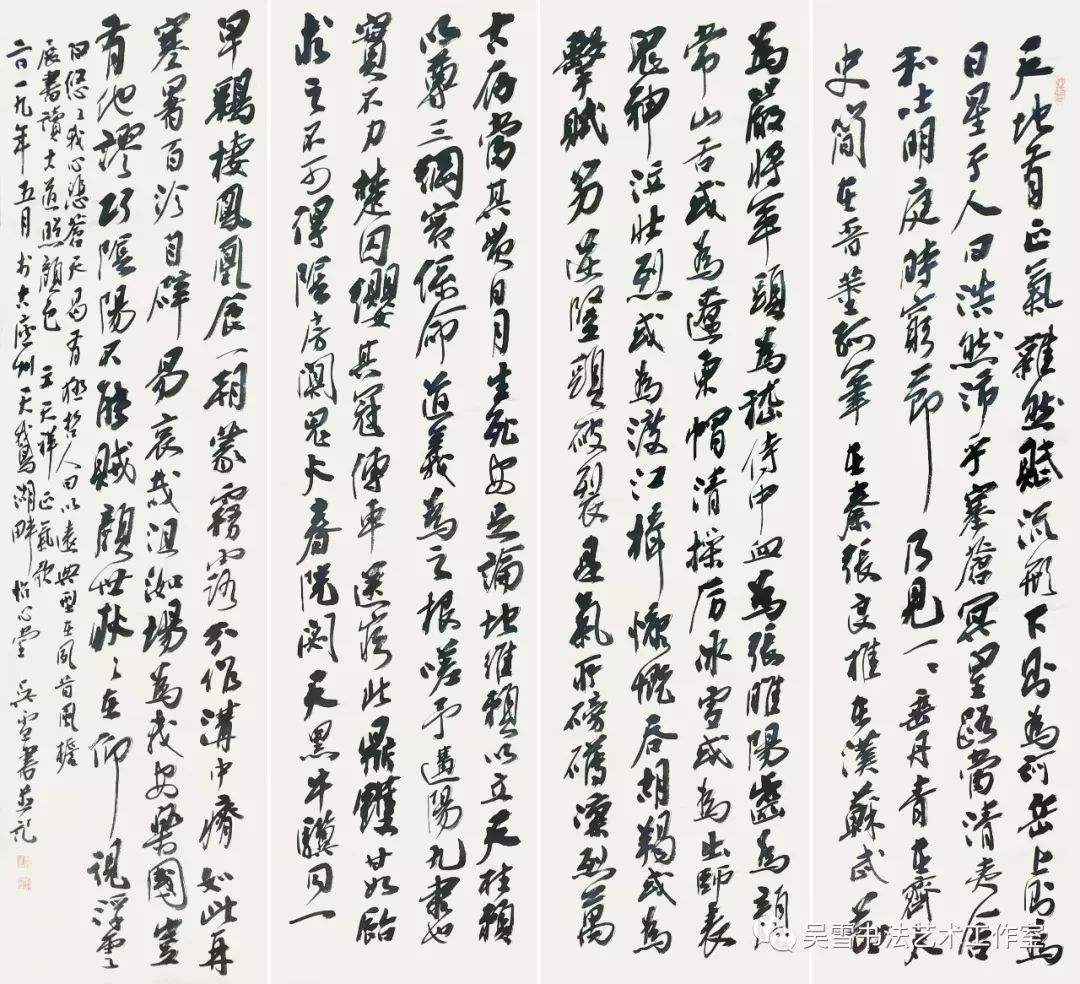 天地有正氣雜然賦流形下則為河岳上則為
日星于人曰浩然沛乎塞蒼冥皇路當清夷含
和吐明庭時窮節乃見一一垂丹青在齊太
史簡在晉董狐筆在秦張良椎在漢蘇武節
為嚴將軍頭為嵇侍中血為張睢陽齒為顏
常山舌或為遼東帽清操厲冰雪或為出師表
鬼神泣壯烈或為渡江楫慷慨吞胡羯或為
擊賊笏逆豎頭破裂是氣所磅礴凜烈萬
古存當其貫日月生死安足論地維賴以立天柱賴
以尊三綱實係命道義為之根嗟予遘陽九隸也
實不力楚囚纓其冠傳車送窮北鼎鑊甘如飴
求之不可得陰房闃鬼火春院閟天黑牛驥同一
皁鷄棲鳳凰食一朝蒙霧露分作溝中瘠如此再
寒暑百沴自辟易哀哉沮洳場為我安樂國豈
有他謬巧陰陽不能賊顧世耿〻在仰視浮雲
白悠〻我心悲蒼天曷有極哲人日以遠典型在夙昔風檐
展書讀古道照顏色 文天祥正氣歌
二〇一九年五月於古廬州天鵝湖畔怡心堂 吳雪書並記
吴雪书法艺术工作室